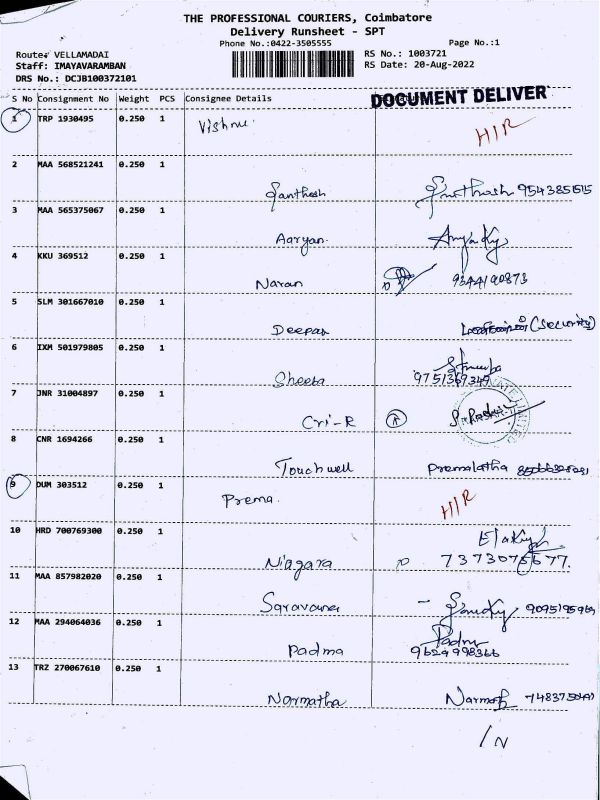 THE PROFESSIONAL COURIERS, Coimbatore
Delivery Runsheet - SPT
Phone No.:0422-3505555 Page No.:1
Route: VELLAMADAI RS No.: 1003721
Staff: IMAYAVARAMBAN RS Date: 20-Aug-2022
DRS No.: DCJB100372101
S No Consignment No Weight PCS Consignee Details
DOCUMENT DELIVER
1 TRP 1930495 0.250 1 Vishnu. H/R
2 MAA 568521241 0.250 1
Santhosh
3 MAA 565375067 0.250 1
Aaryan
4 KKU 369512 0.250 1
Naran 9344190873
5 SLM 301667010 0.250 1
Deepan (Security)
6 IXM 501979805 0.250 1
Sheeba 9751369349
7 JNR 31004897 0.250 1
Cri-R
8 CNR 1694266 0.250 1
Touchwell Premalatha
9 DUM 303512 0.250 1 Prema. H/R
10 HRD 700769300 0.250 1
Niagara
11 MAA 857982020 0.250 1
Saravana
12 MAA 294064036 0.250 1 Padma
Padma 9629998366
13 TRZ 270067610 0.250 1
Normatha